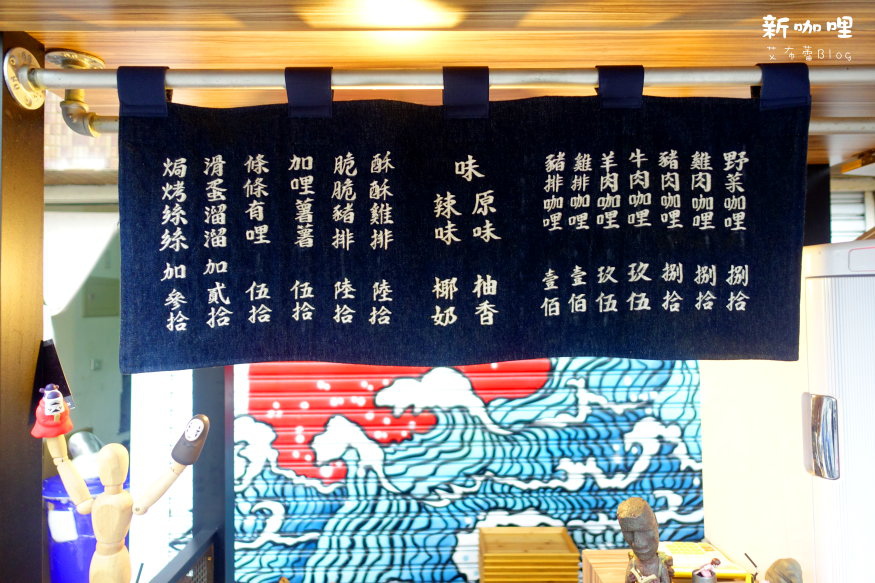 新咖哩
艾布蕾Blog
野菜咖哩 捌拾
雞肉咖哩 捌拾
豬肉咖哩 捌拾
牛肉咖哩 玖伍
羊肉咖哩 玖伍
雞排咖哩 壹佰
豬排咖哩 壹佰
味
原味 柚香
辣味 椰奶
酥酥雞排 陸拾
脆脆豬排 陸拾
加哩薯薯 伍拾
條條有哩 伍拾
滑蛋溜溜 加貳拾
焗烤絲絲 加參拾